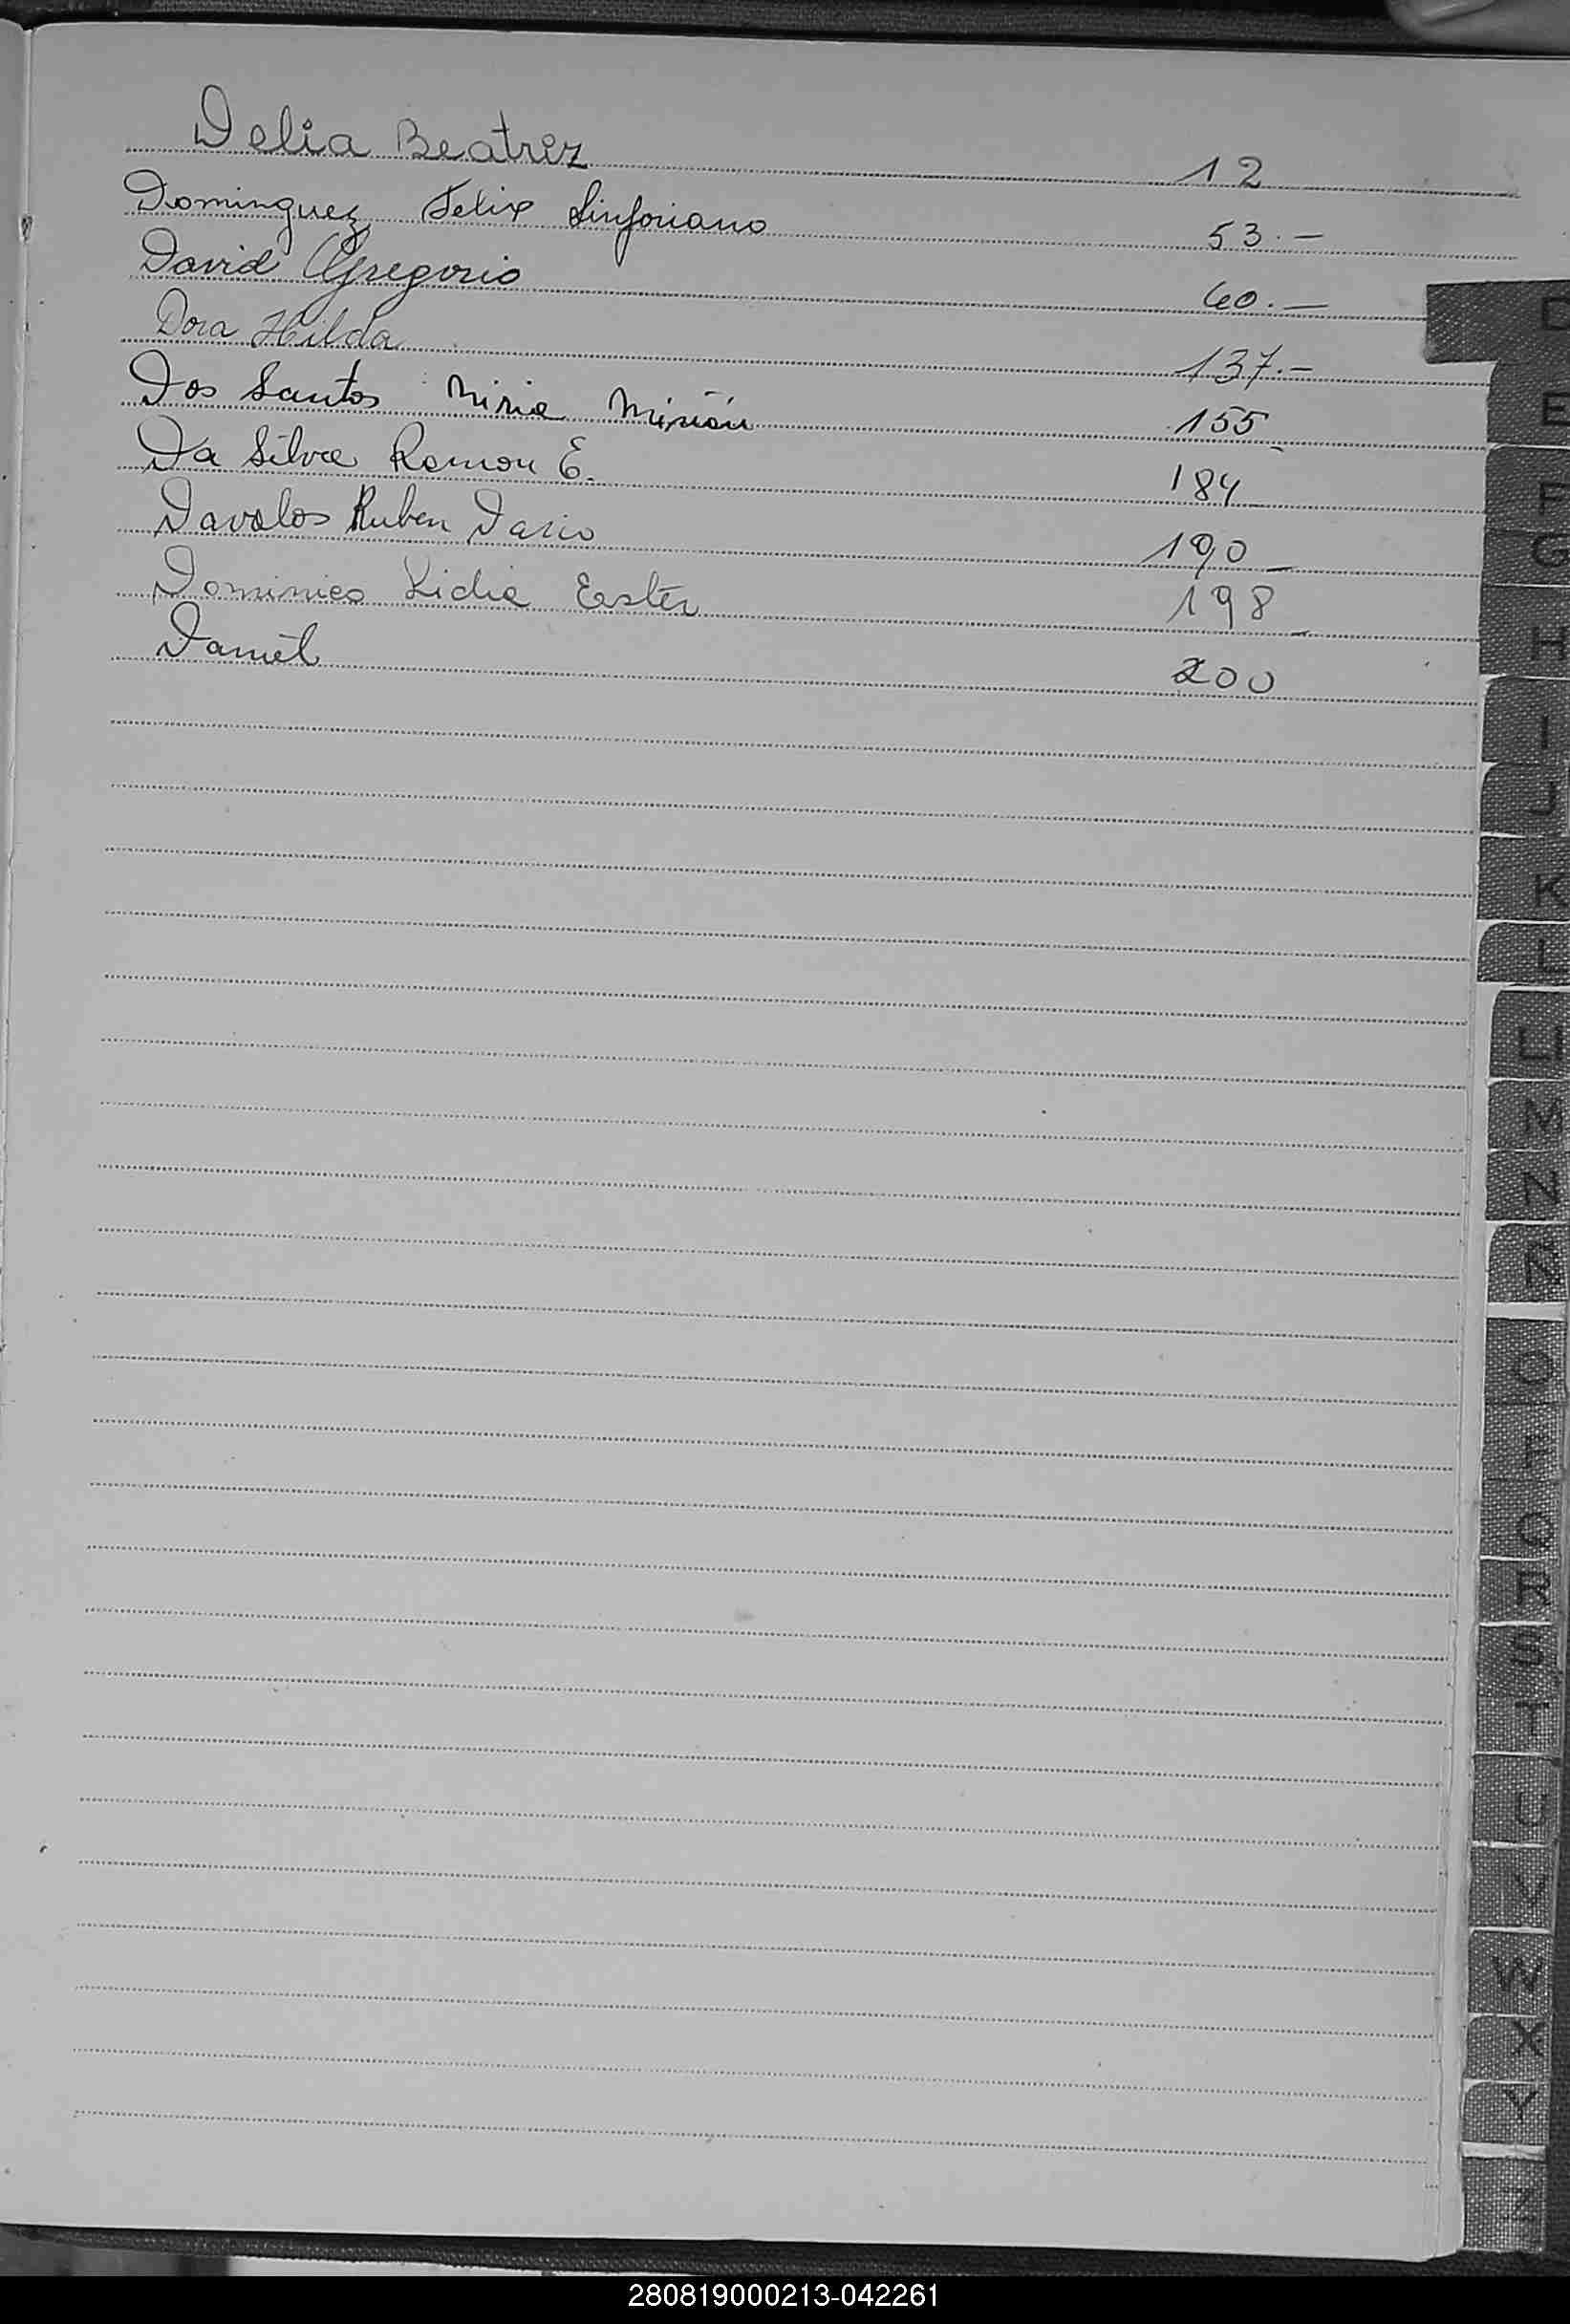 Delia Beatriz 12
Dominguez Felix Sinforiano 53.-
David Gregorio 60.-
Dora Hilda 137.-
Dos Santos Mirian 155
Da Silva Ramon E. 184
Davalos Ruben Dario 190
Dominico Lidia Ester 198
Daniel 200
D
E
F
G
H
I
J
K
L
LL
M
N
Ñ
O
P
Q
R
S
T
U
V
W
X
Y
Z
280819000213-042261